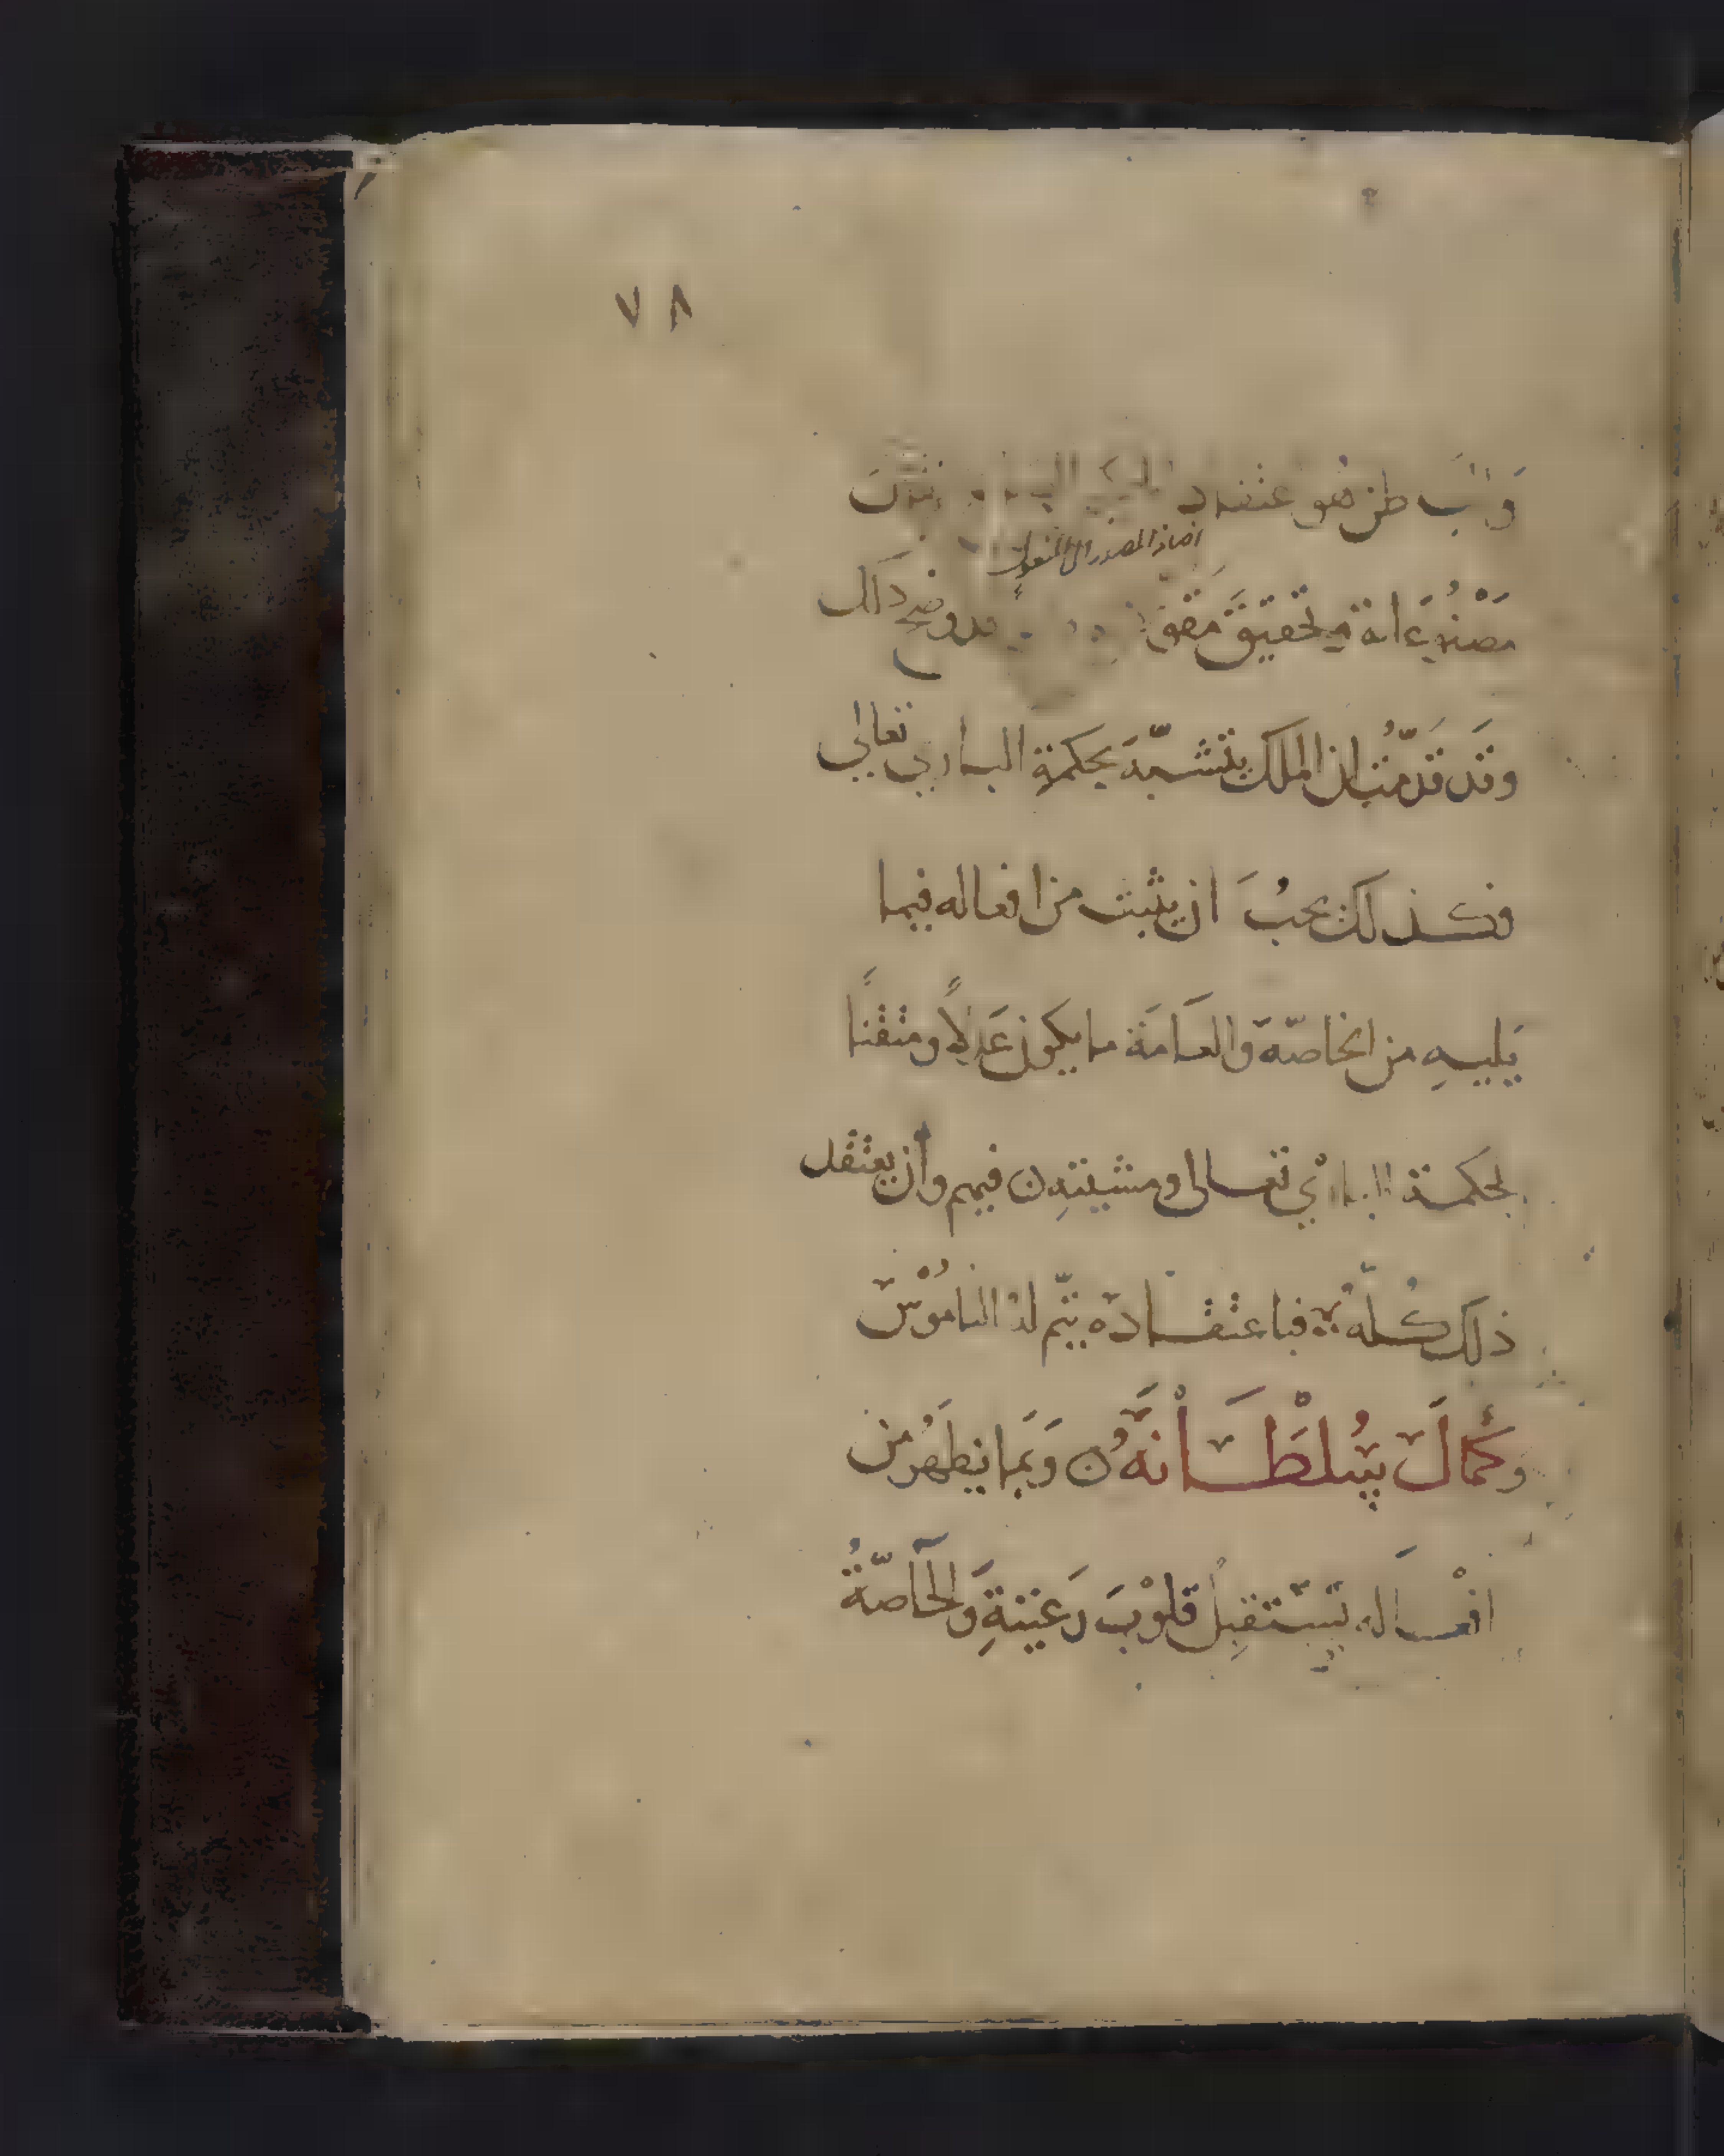 ٧٨
وَالبَاطن هو عتقاد
اضاف المصدر الى المفعول
مَصْنُوعَاته في تحقيق وضح ذَالك
وقَد قَدّمتُ ان الملك يتشبّه بحكمةِ الباري تعالى
فكذلك يجبُ ان يثبت من افعاله فيما
يَليهِ من الخاصّة وَالعَامَة ما يكون عَدلاً ومتقنًا
لحكمة الباري تعالى ومشيئتِه ن فيهم وأن يعتقد
ذلك كُلّهُ فباعتقادهِ يتم لهُ النامُوْسُ
وكَمالَ سُلْطَانَهُ ن وَبمَا يَظهَرُ من
افْعَاله يَسْتَقبِلُ قلوْبَ رَعيتهِ وَالخَاصّةُ